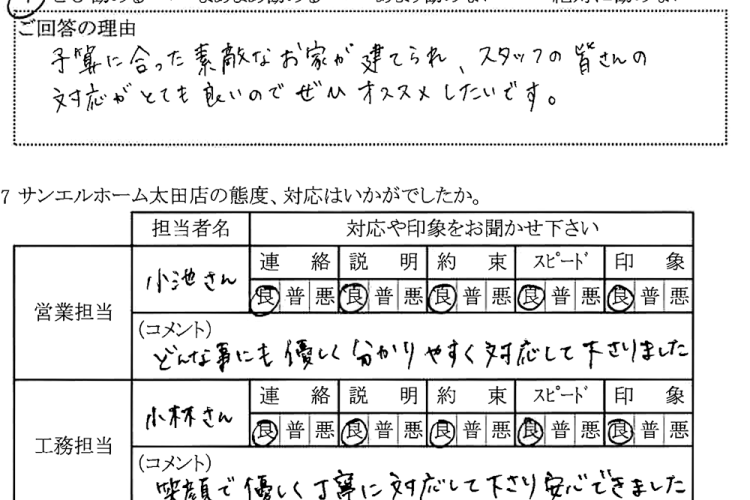 ご回答の理由
予算に合った素敵なお家が建てられ、スタッフの皆さんの
対応がとても良いのでぜひオススメしたいです。
7 サンエルホーム太田店の態度、対応はいかがでしたか。
担当者名 対応や印象をお聞かせ下さい
営業担当 小池さん 連絡 説明 約束 スピード 印象
良 普 悪 良 普 悪 良 普 悪 良 普 悪 良 普 悪
(コメント)
どんな事にも優しく分かりやすく対応して下さりました
工務担当 小林さん 連絡 説明 約束 スピード 印象
良 普 悪 良 普 悪 良 普 悪 良 普 悪 良 普 悪
(コメント)
笑顔で優しく丁寧に対応して下さり安心できました